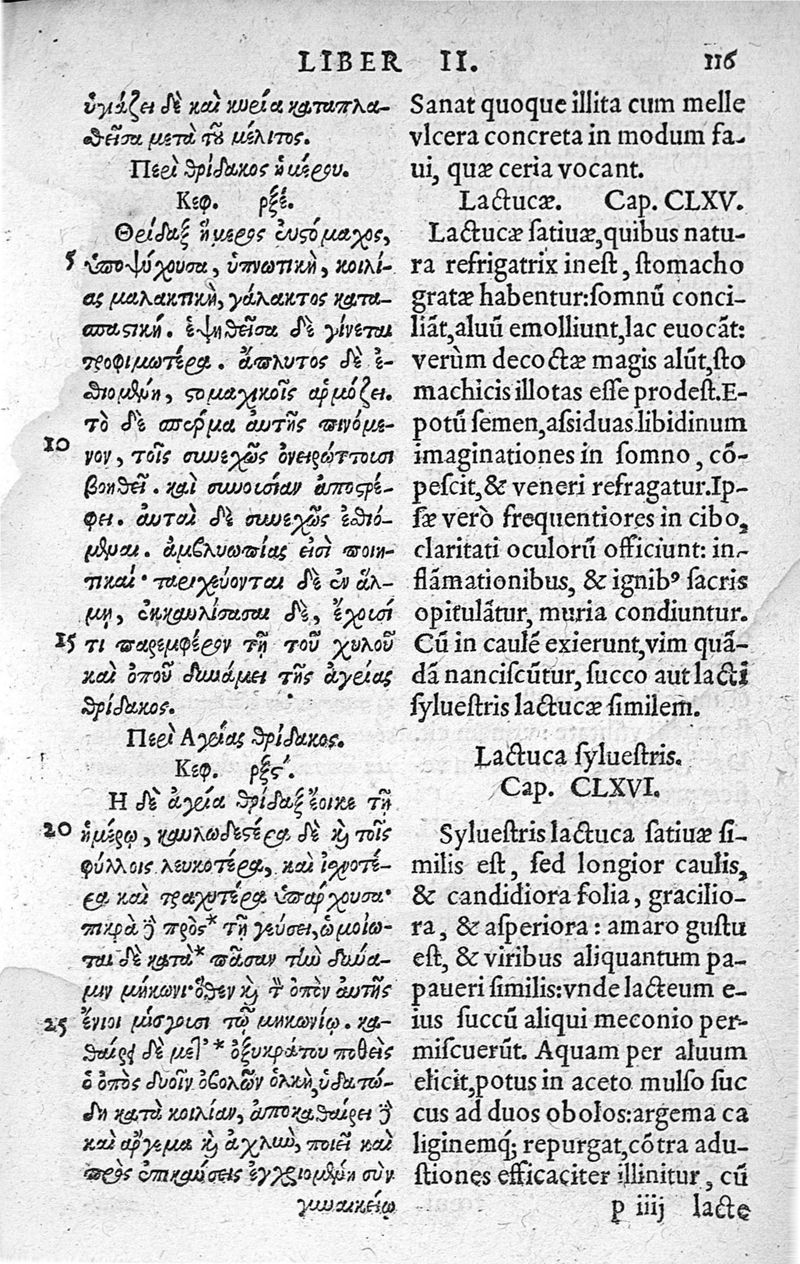 LIBER II. 116
ὑγιάζει δὲ καὶ κηρία καταπλα-
σθεῖσα μετὰ τοῦ μέλιτος.
Περὶ θρίδακος ἡμέρου.
Κεφ. ρξέ.
Θρίδαξ ἥμερος εὐστόμαχος,
5 ὑποψύχουσα, ὑπνωτικὴ, κοιλί-
ας μαλακτική, γάλακτος κατα-
σπαστική. ἑψηθεῖσα δὲ γίνεται
τροφιμωτέρα. ἄπλυτος δὲ ἐ-
σθιομένη, στομαχικοῖς ἁρμόζει.
τὸ δὲ σπέρμα αὐτῆς πινόμε-
10 νον, τοῖς συνεχῶς ὀνειρώττουσι
βοηθεῖ. καὶ συνουσίαν ἀποστρέ-
φει. αὗται δὲ συνεχῶς ἐσθιό-
μεναι. ἀμβλυωπίας εἰσὶ ποιη-
τικαί· ταριχεύονται δὲ ἐν ἅλ-
μῃ, ἐκκαυλίσασαι δὲ, ἔχουσί
15 τι παρεμφέρον τῇ τοῦ χυλοῦ
καὶ ὀποῦ δυνάμει τῆς ἀγρίας
θρίδακος.
Περὶ Αγρίας θρίδακος.
Κεφ. ρξϛ΄.
Η δὲ ἀγρία θρίδαξ ἔοικε τῇ
20 ἡμέρῳ, καυλωδεστέρα δὲ κὶ τοῖς
φύλλοις λευκοτέρα, καὶ ἰσχνοτέ-
ρα καὶ τραχυτέρα ὑπάρχουσα·
πικρὰ δὲ πρὸς* τῇ γεύσει, ὡμοίω-
ται δὲ κατὰ* πᾶσαν τὴν δύνα-
μιν μήκωνι· ὅθεν κὶ τὸν ὀπὸν αὐτῆς
25 ἔνιοι μίσγουσι τῷ μηκωνίῳ. κα-
θαίρει δὲ μετ᾽* ὀξυκράτου ποθεὶς
ὁ ὀπὸς δυοῖν ὀβολῶν ὁλκὴ, ὑδατώ-
δη κατὰ κοιλίαν, ἀποκαθαίρει δὲ
καὶ ἄργεμα κὶ ἀχλὺν, ποιεῖ καὶ
πρὸς ἐπικαύσεις ἐγχριομένη σὺν
γυναικείῳ
Sanat quoque illita cum melle
vlcera concreta in modum fa-
ui, quæ ceria vocant.
Lactucæ. Cap. CLXV.
Lactucæ satiuæ, quibus natu-
ra refrigatrix inest, stomacho
gratæ habentur: somnū conci-
liāt, aluū emolliunt, lac euocāt:
verùm decoctæ magis alūt, sto
machicis illotas esse prodest. E-
potū semen, assiduas libidinum
imaginationes in somno, cō-
pescit, & veneri refragatur. Ip-
sæ verò frequentiores in cibo,
claritati oculorū officiunt: in-
flāmationibus, & ignibꝰ sacris
opitulātur, muria condiuntur.
Cū in caulē exierunt, vim quā-
dā nanciscūtur, succo aut lacti
syluestris lactucæ similem.
Lactuca syluestris.
Cap. CLXVI.
Syluestris lactuca satiuæ si-
milis est, sed longior caulis,
& candidiora folia, gracilio-
ra, & asperiora: amaro gustu
est, & viribus aliquantum pa-
paueri similis: vnde lacteum e-
ius succū aliqui meconio per-
miscuerūt. Aquam per aluum
elicit, potus in aceto mulso suc
cus ad duos obolos: argema ca
liginemq; repurgat, cōtra adu-
stiones efficaciter illinitur, cū
p iiij lacte